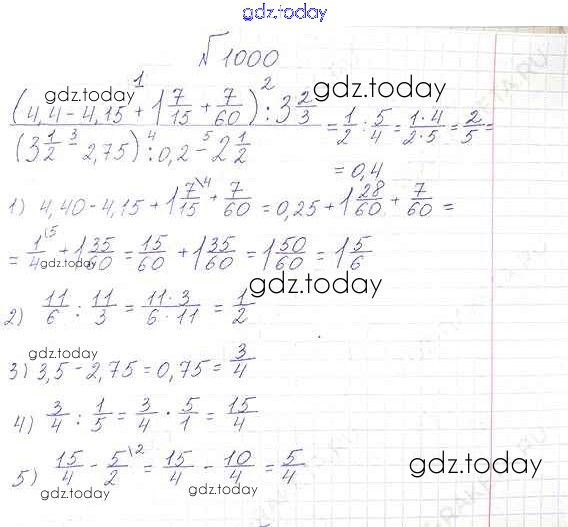 gdz.today
№ 1000
(4,4 - 4,15 + 1 7/15 + 7/60) : 3 2/3 / (3 1/2 - 2,75) : 0,2 - 2 1/2 = 1/2 : 5/4 = 1·4/2·5 = 2/5 =
1 2
3 4 5
gdz.today gdz.today gdz.today
= 0,4
1) 4,40 - 4,15 + 1 7/15 \4 + 7/60 = 0,25 + 1 28/60 + 7/60 =
= 1/4 \5 + 1 35/60 = 15/60 + 1 35/60 = 1 50/60 = 1 5/6
gdz.today gdz.today
2) 11/6 : 11/3 = 11·3/6·11 = 1/2
gdz.today
3) 3,5 - 2,75 = 0,75 = 3/4
4) 3/4 : 1/5 = 3/4 · 5/1 = 15/4
5) 15/4 - 5/2 \2 = 15/4 - 10/4 = 5/4
gdz.today gdz.today gdz.today